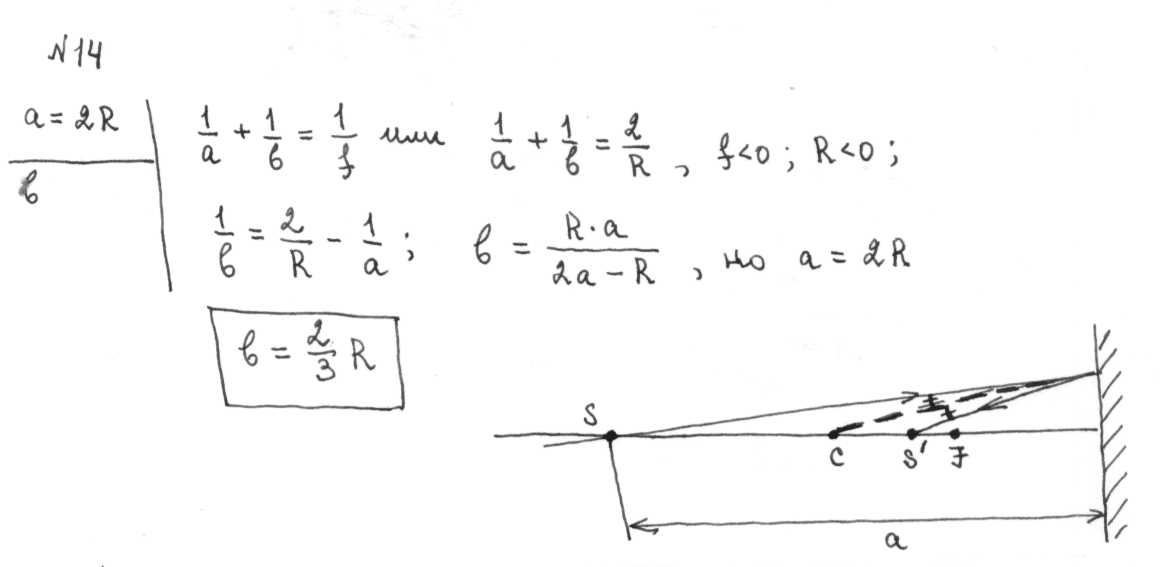 N14
a = 2R
в
1/a + 1/в = 1/f или 1/a + 1/в = 2/R , f<0 ; R<0 ;
1/в = 2/R − 1/a ; в = R·a / 2a − R , но a = 2R
в = 2/3 R
S
C S' F
a